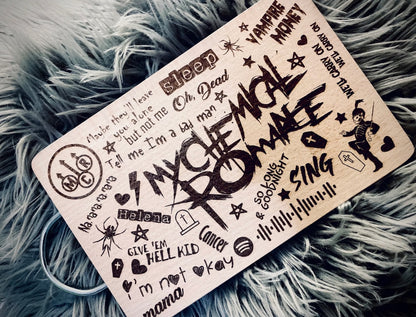 VAMPIRE
MONEY
WE'LL CARRY ON
WE'LL CARRY ON
sleep
Maybe they'll leave
you alone
but not me
Oh, Dead
Tell me I'm a bad man
MCR
MY CHEMICAL
ROMANCE
Na na na na na
SING
SO LONG
& GOODNIGHT
Helena
GIVE 'EM
HELL KID
Cancer
i'm not okay
mama